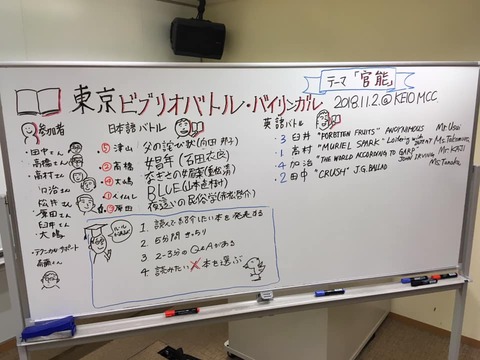 テーマ「官能」
東京ビブリオバトル・バイリンガル 2018.11.2.@KEIO MCC
参加者
・田中さん
・高橋さん
・高村さん
・加治さん
・原田さん
・臼井さん
・大嶋
・テクニカルサポート
日本語バトル
⑤津山 父の詫び状(向田邦子)
②高橋 娼年(石田衣良)
④大嶋
BLUE
夜這いの民俗学(赤松啓介)
英語バトル
3 臼井 "FORBITTEN FRUITS" ANONYMOUS Mr.Usui
1 高村 "MURIEL SPARK" Loitering with INTENT
4 加治 "THE WORLD ACCORDING TO GARP" JOHN IRVING Mr.KAJI
2 田中 "CRUSH" J.G.BALLAD Ms.Tanaka
1. 読んで紹介したい本を発表する
2. 5分間きっちり
3. 2-3分のQ&Aがある
4. 読みたい本を選ぶ